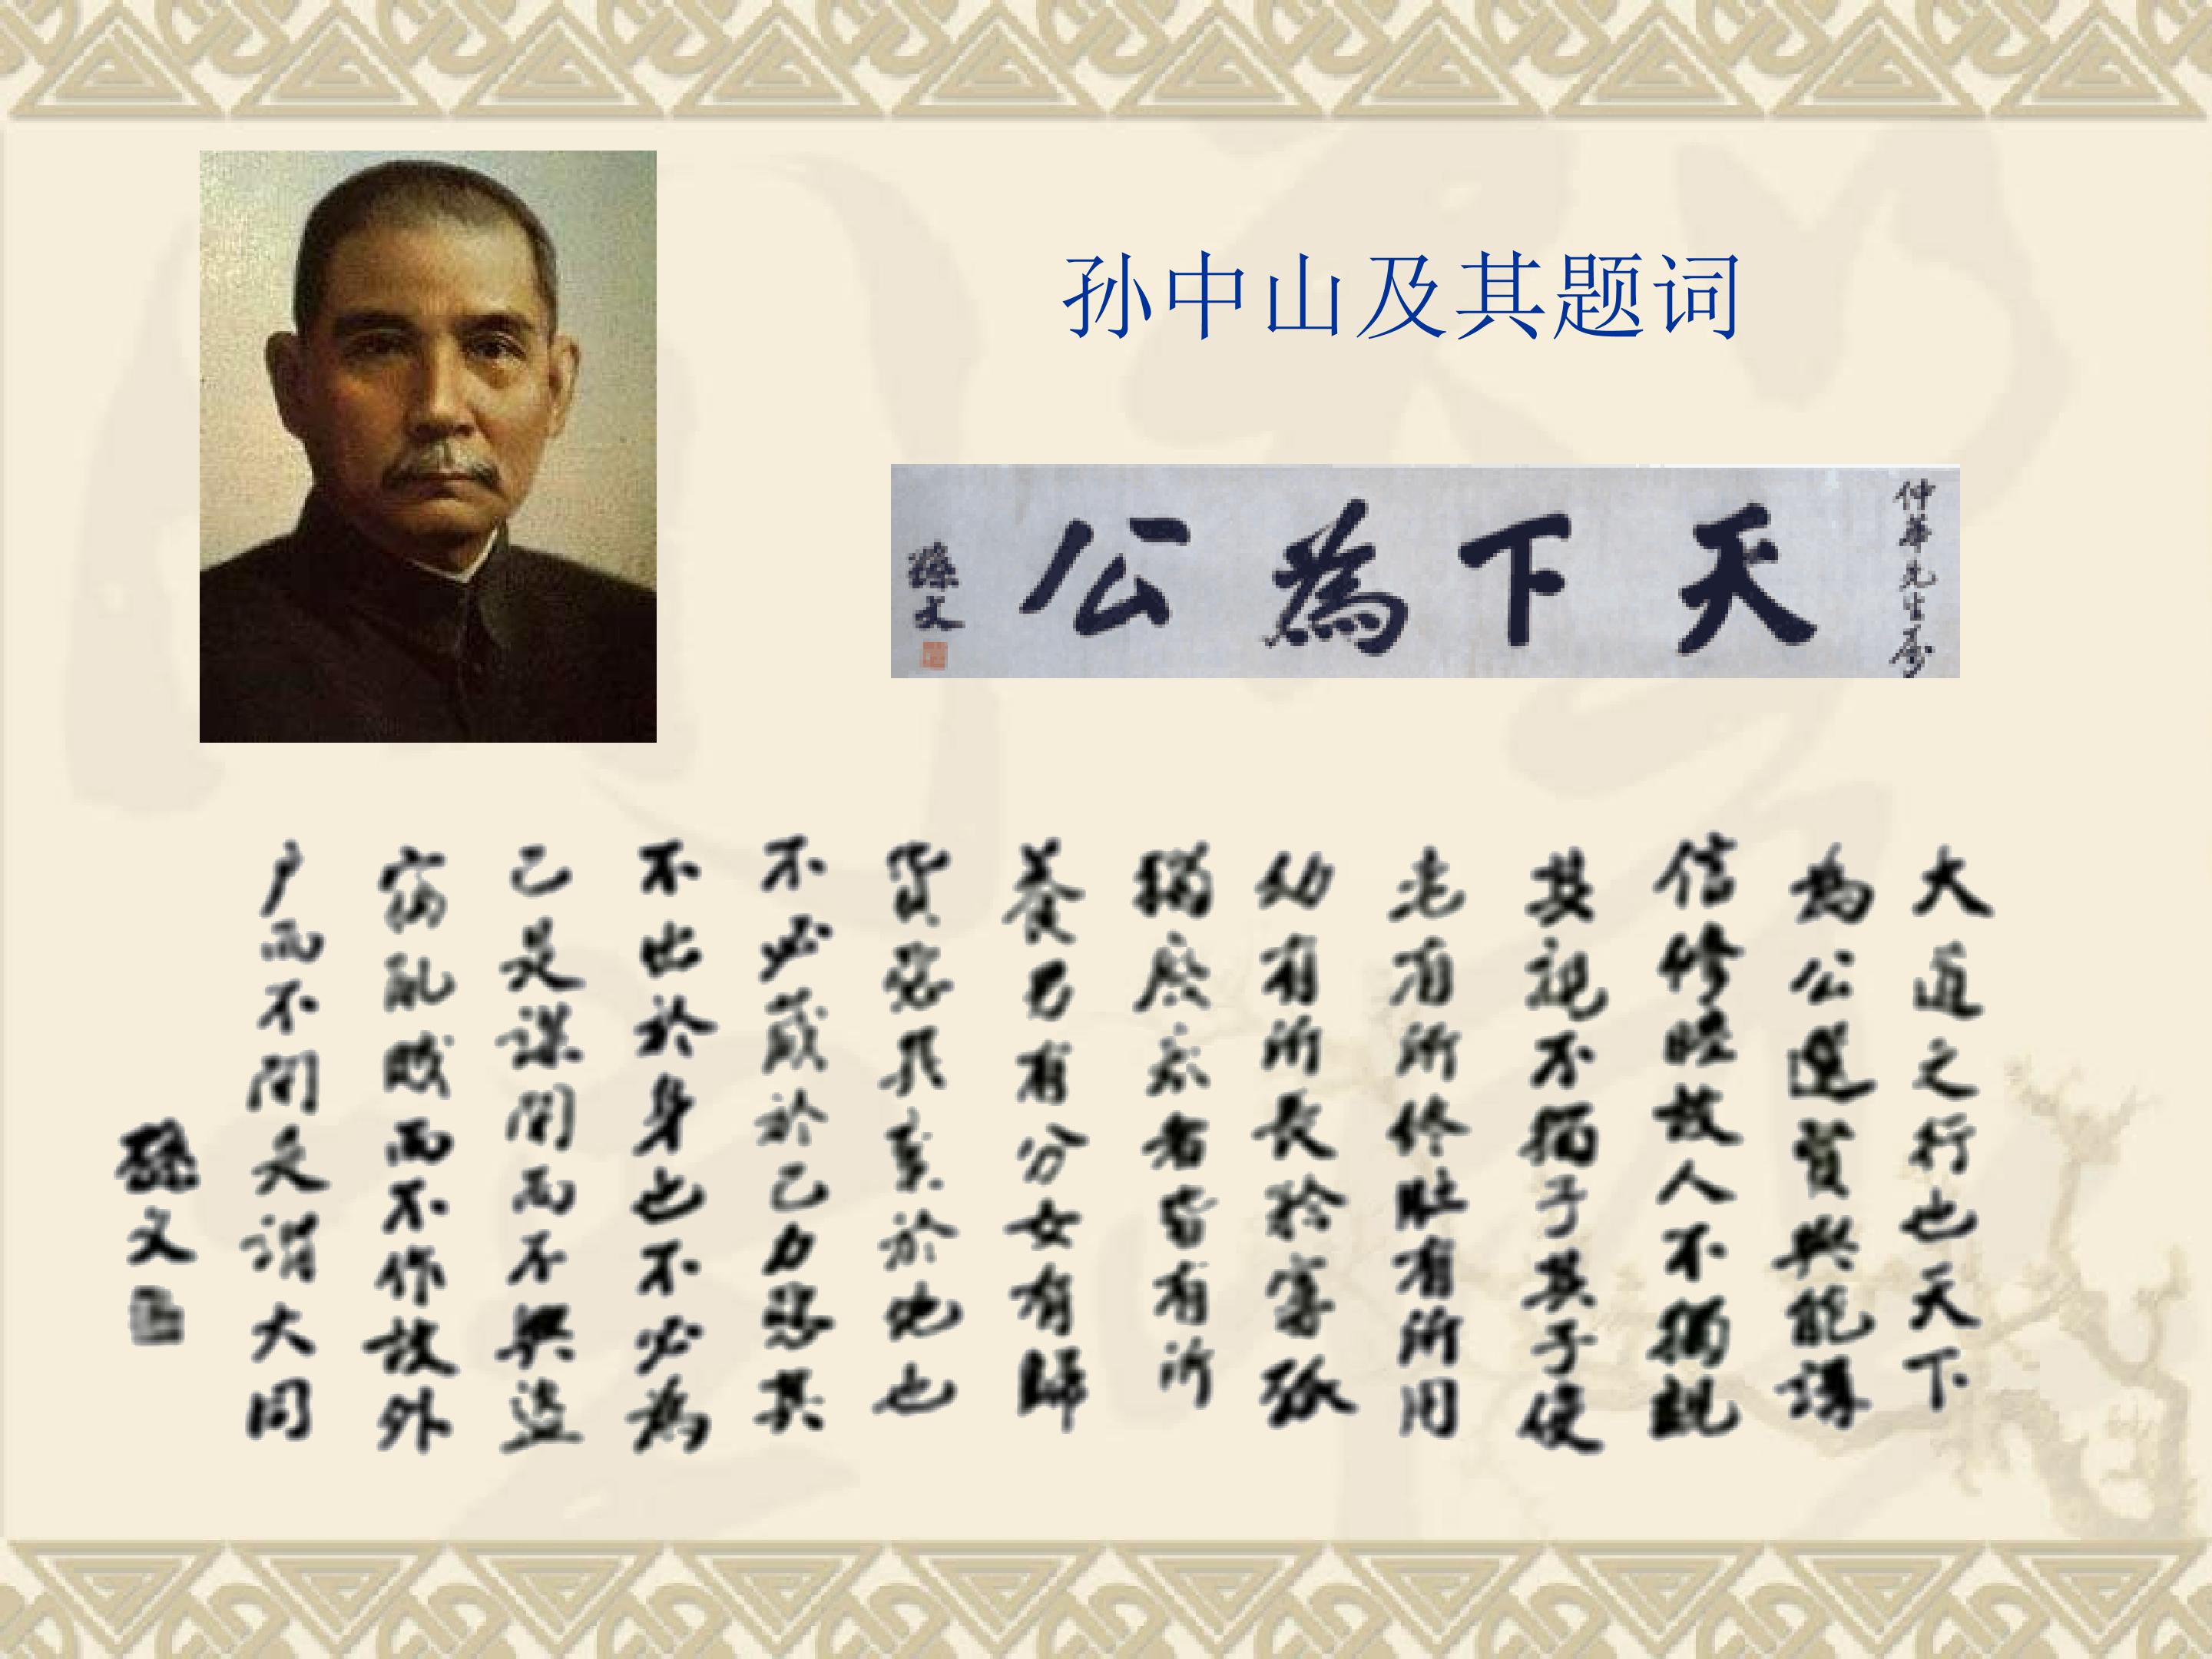 孙中山及其题词
仲華先生屬
天下為公
孫文
大道之行也天下
為公選賢與能講
信修睦故人不獨親
其親不獨子其子使
老有所終壯有所用
幼有所長矜寡孤
獨廢疾者皆有所
養男有分女有歸
貨惡其棄於地也
不必藏於己力惡其
不出於身也不必為
己是謀閉而不興盜
竊亂賊而不作故外
戶而不閉是謂大同
孫文